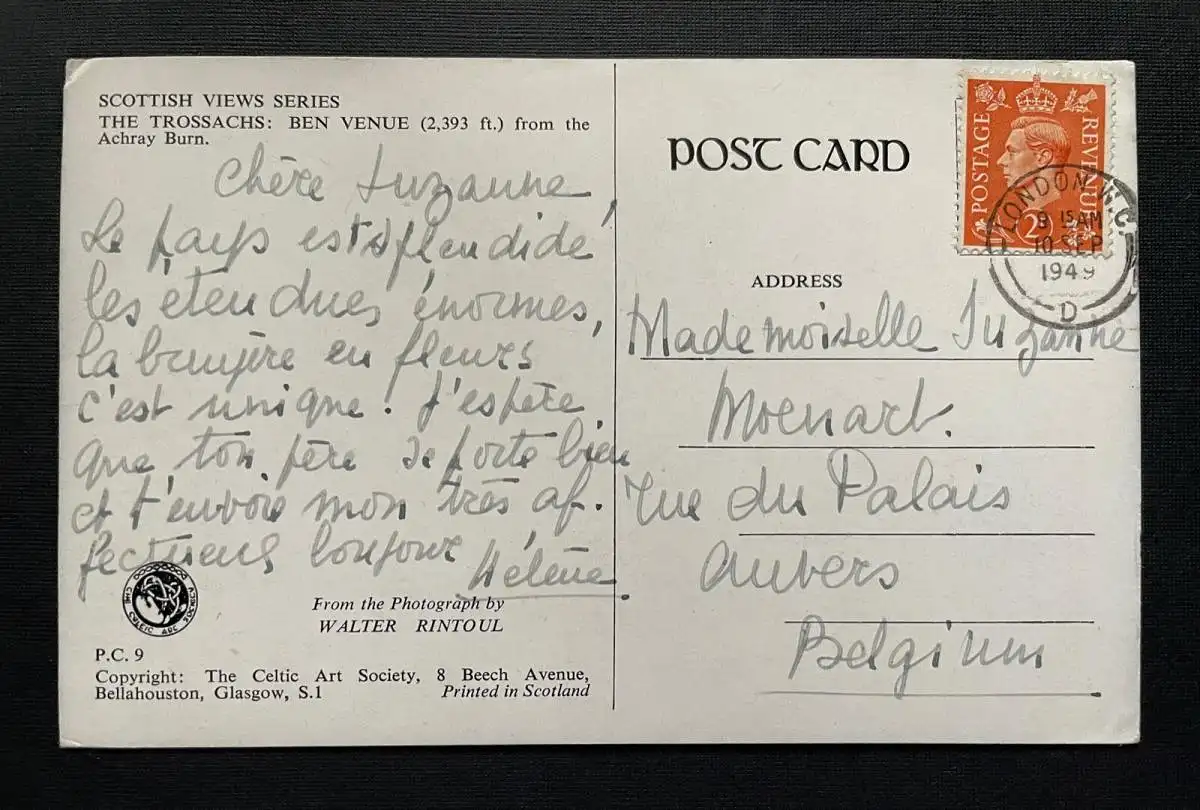 SCOTTISH VIEWS SERIES
THE TROSSACHS: BEN VENUE (2,393 ft.) from the
Achray Burn.
Chère Suzanne,
Le pays est splendide
les étendues énormes,
la bruyère en fleurs
c'est unique! J'espère
que ton père se porte bien
et t'envoie mon très af-
fectueux bonjour
Hélène
From the Photograph by
WALTER RINTOUL
THE CELTIC ART SOCIETY
P.C. 9
Copyright: The Celtic Art Society, 8 Beech Avenue,
Bellahouston, Glasgow, S.1
Printed in Scotland
POST CARD
POSTAGE REVENUE
2D
LONDON. W.C.
9 15 AM
10 SEP
1949
D
ADDRESS
Mademoiselle Suzanne
Moenart.
rue du Palais
Anvers
Belgium